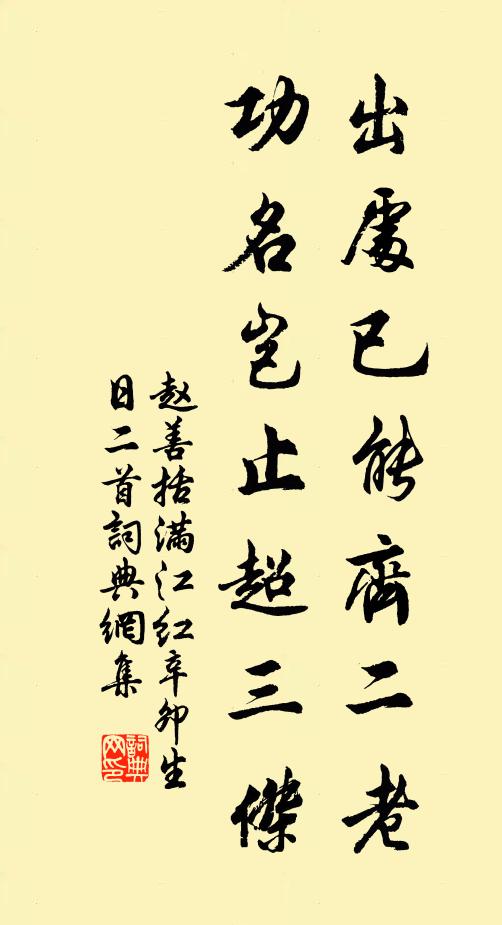 出處已能齊二老
功名豈止超三傑
赵善括满江红辛卯生
日二首詞典網集
詞典網印